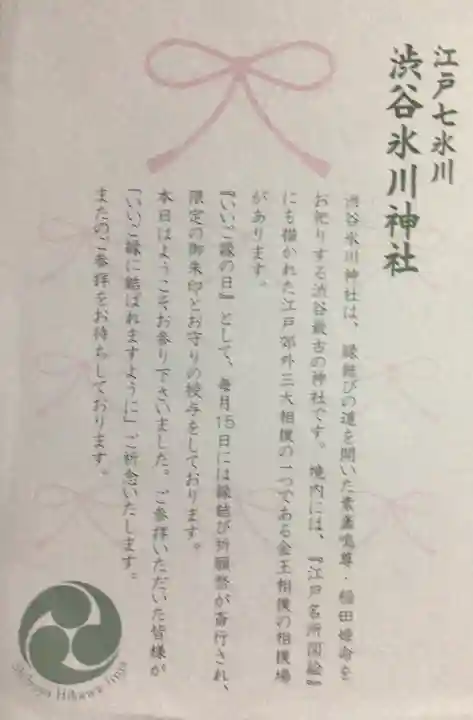 江戸七氷川
渋谷氷川神社
渋谷氷川神社は、縁結びの道を開いた素盞鳴尊・稲田姫命を
お祀りする渋谷最古の神社です。境内には、『江戸名所図絵』
にも描かれた江戸郊外三大相撲の一つである金王相撲の相撲場
があります。
『いいご縁の日』として、毎月15日には縁結び祈願祭が斎行され、
限定の御朱印とお守りの授与をしております。
本日はようこそお参り下さいました。ご参拝いただいた皆様が
「いいご縁に結ばれますように」ご祈念いたします。
またのご参拝をお待ちしております。
Shibuya Hikawa Jinja